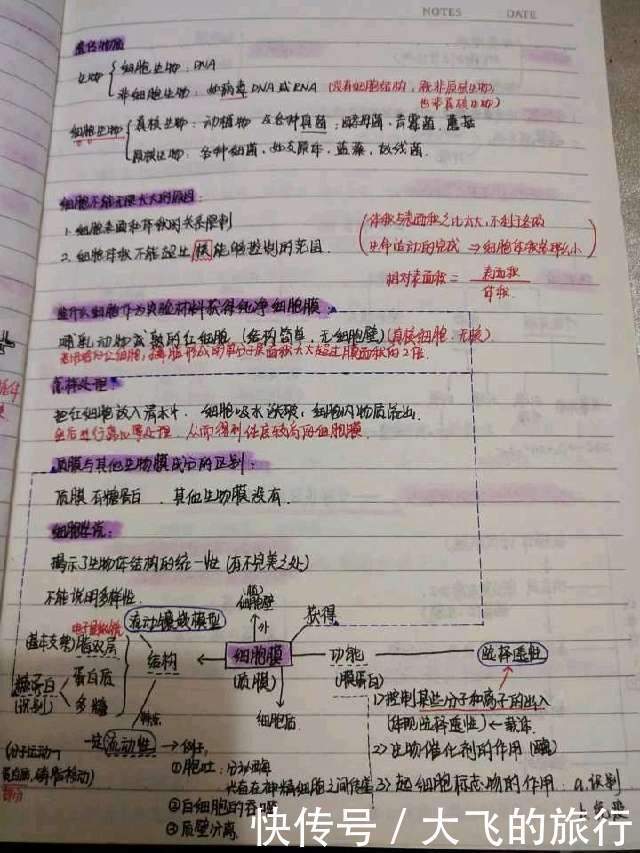 NOTES DATE
遗传物质
生物 细胞生物：DNA
非细胞生物：如病毒 DNA或RNA (没有细胞结构，既非原核生物，
也非真核生物)
细胞生物 真核生物：动植物 及各种真菌：酵母菌、青霉菌、蘑菇
原核生物：各种细菌、如支原体、蓝藻、放线菌.
细胞不能无限长大的原因：
1. 细胞表面和体积的关系限制
2. 细胞体积不能超出核能够控制的范围.
(体积与表面积之比太大，不利于
生命活动的完成 ⇒ 细胞体积
相对表面积 = 表面积
体积
细胞作为实验材料获得纯净细胞膜
哺乳动物成熟的红细胞 (结构简单，无细胞壁) (真核细胞、无核)
单分子层面积 膜面积的2倍.
怎样处理：
把红细胞放入清水中. 细胞吸水涨破，细胞内物质流出.
然后进行离心等处理，从而得到纯度较高的细胞膜
质膜与其他生物膜成分的区别：
质膜有糖蛋白. 其他生物膜没有.
细胞学说：
揭示了生物体结构的统一性 (有不完美之处)
不能说明多样性.
细胞壁
外
流动镶嵌模型
获得
电子显微镜
(基本支架) 脂双层
结构
细胞膜
(质膜)
功能
(膜蛋白)
选择透性
糖蛋白
(识别)
蛋白质
多糖
细胞质
1) 控制某些分子和离子的出入
(体现选择透性) ← 载体
2) 生物催化剂的作用 (酶)
特点
一定流动性 → 例：
(分子运动
蛋白质，磷脂移动)
①胞吐：分泌
神经细胞之间传递
3) 起细胞标志物的作用：a. 识别
②白细胞的吞噬
③质壁分离
快传号 / 大飞的旅行